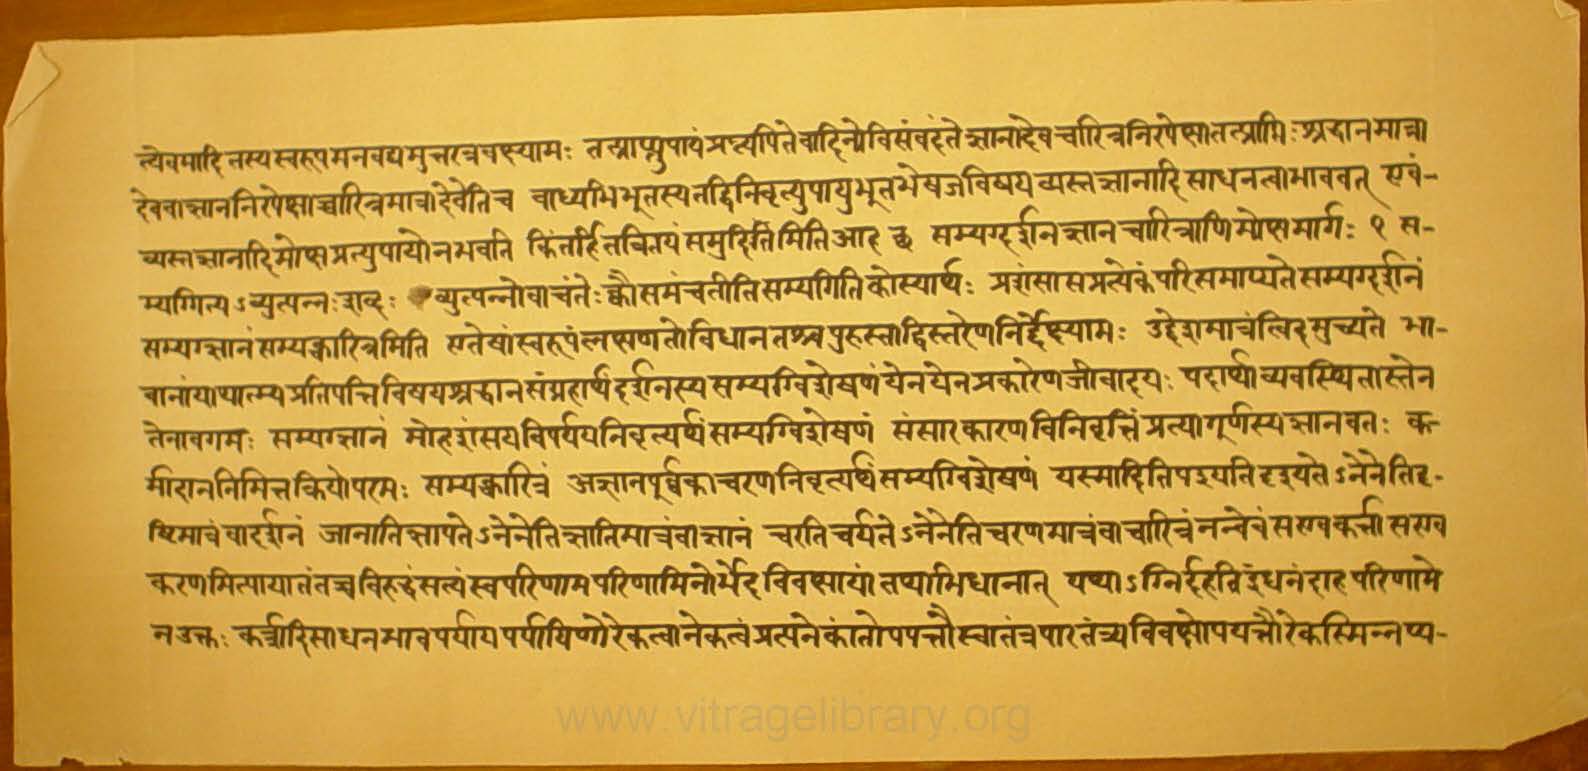 त्येवमादि तस्य स्वरूपमनवद्यमुत्तरत्रवक्ष्यामः तत्प्राप्त्युपायं प्रत्यपितेवादिनोविसंवदंतेज्ञानादेवचारित्रनिरपेक्षातत्प्राप्तिःश्रद्धानमात्रा
देववाज्ञाननिरपेक्षाच्चारित्रमात्रादेवेतिच वाध्यभिभूतस्यतद्विनिवृत्युपायुभूतभेषजविषयव्यस्तज्ञानादिसाधनत्वाभाववत् एवं-
व्यस्तज्ञानादिमोक्षप्रत्युपायोनभवति किंतर्हितत्रितयंसमुदितमिति आह छ सम्यग्दर्शनज्ञानचारित्राणिमोक्षमार्गः १ स-
म्यगित्यऽव्युत्पन्नःशब्दः व्युत्पन्नोवाचंतेःक्वौसमंचतीतिसम्यगिति कोस्यार्थः प्रशंसा सप्रत्येकंपरिसमाप्यतेसम्यग्दर्शनं
सम्यग्ज्ञानंसम्यक्चारित्रमिति एतेषांस्वरूपंलक्षणतोविधानतश्चपुरस्ताद्विस्तरेणनिर्द्देक्ष्यामः उद्देशमात्रंत्विदमुच्यते भा-
वानांयाथात्म्यप्रतिपत्तिविषयश्रद्धानसंग्रहार्थंदर्शनस्यसम्यग्विशेषणंयेनयेनप्रकारेणजीवादयः पदार्थाव्यवस्थितास्तेन
तेनावगमः सम्यग्ज्ञानं मोहशंसयविपर्ययनिवृत्यर्थंसम्यग्विशेषणं संसारकारणविनिवृत्तिंप्रत्यागूर्णस्यज्ञानवतः क-
र्मादाननिमित्तक्रियोपरमः सम्यक्चारित्रं अज्ञानपूर्व्वकाचरणनिवृत्यर्थंसम्यग्विशेषणं यस्मादितिपश्यतिदृश्यतेऽनेनेतिदृ-
ष्टिमात्रंवादर्शनं जानातिज्ञायतेऽनेनेतिज्ञातिमात्रंवाज्ञानं चरतिचर्यतेऽनेनेतिचरणमात्रंवाचारित्रंनन्वेवंसएवकर्त्तासएव
करणमित्यायातंतच्चविरुद्धंसत्यंस्वपरिणामपरिणामिनोर्भेदविवक्षायांतथाभिधानात् यथाऽग्निर्दहतिइंधनंदाहपरिणामे
नउक्तः कर्त्रादिसाधनभावपर्यायपर्यायिणोरेकत्वानेकत्वंप्रत्यनेकांतोपपत्तौस्वातंत्र्यपारतंत्र्यविवक्षोपपत्तौरेकस्मिन्नप्य-
www.vitragelibrary.org